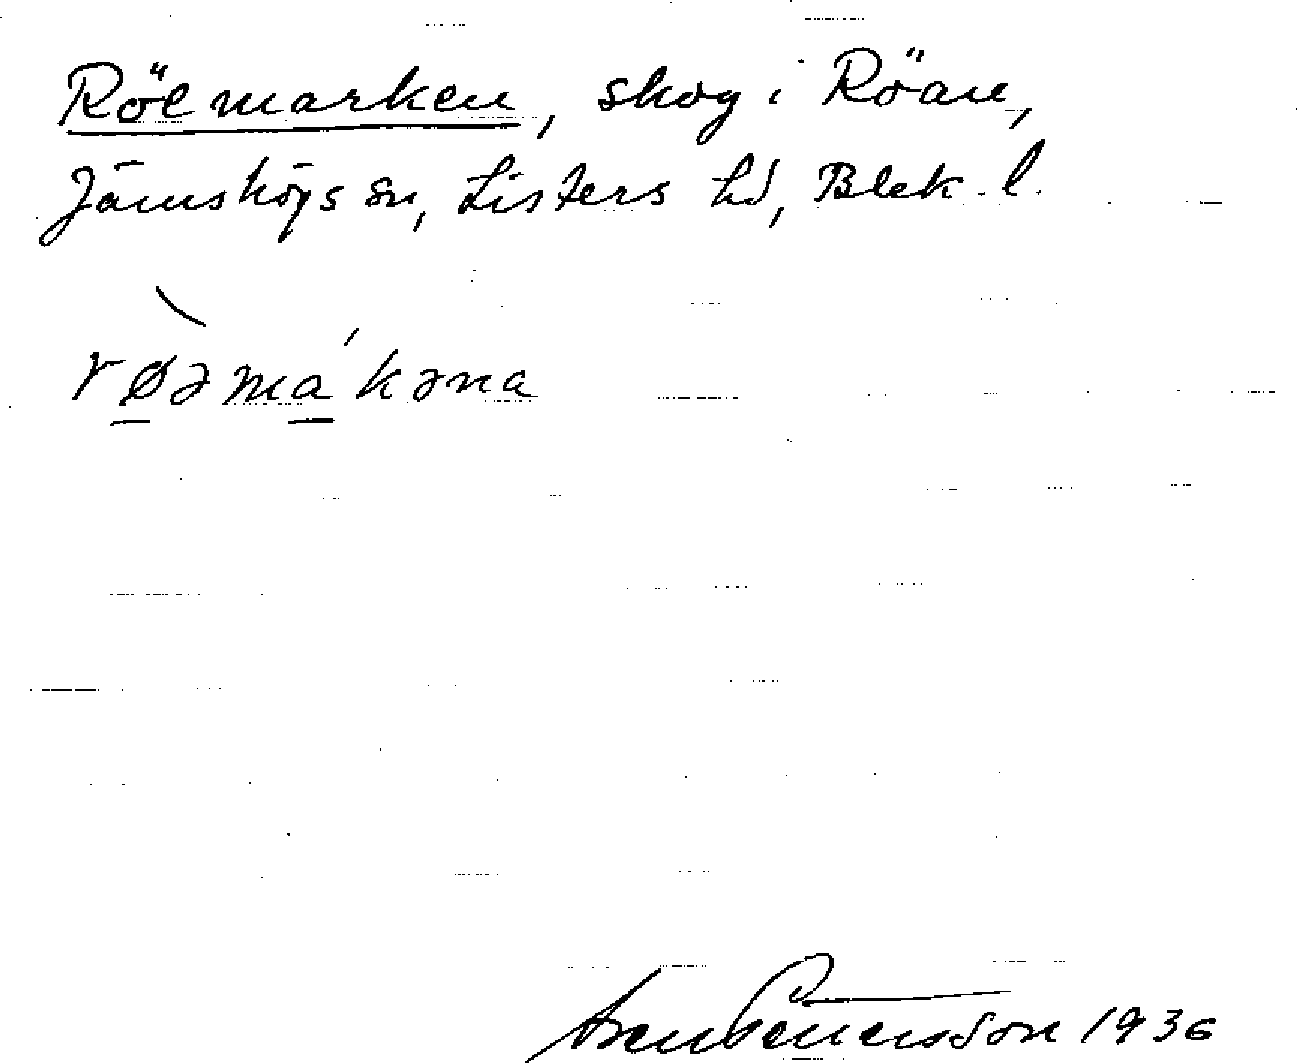 Röemarken, skog i Röan,
Jämshögs sn, Listers hd, Blek. l.
røəmakəna
1936